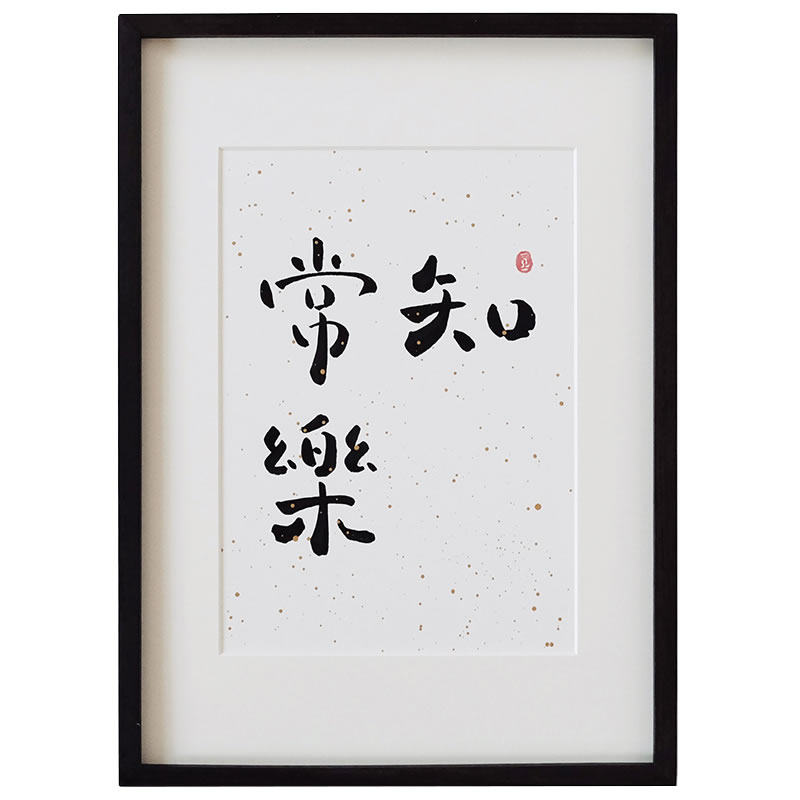 知
常樂